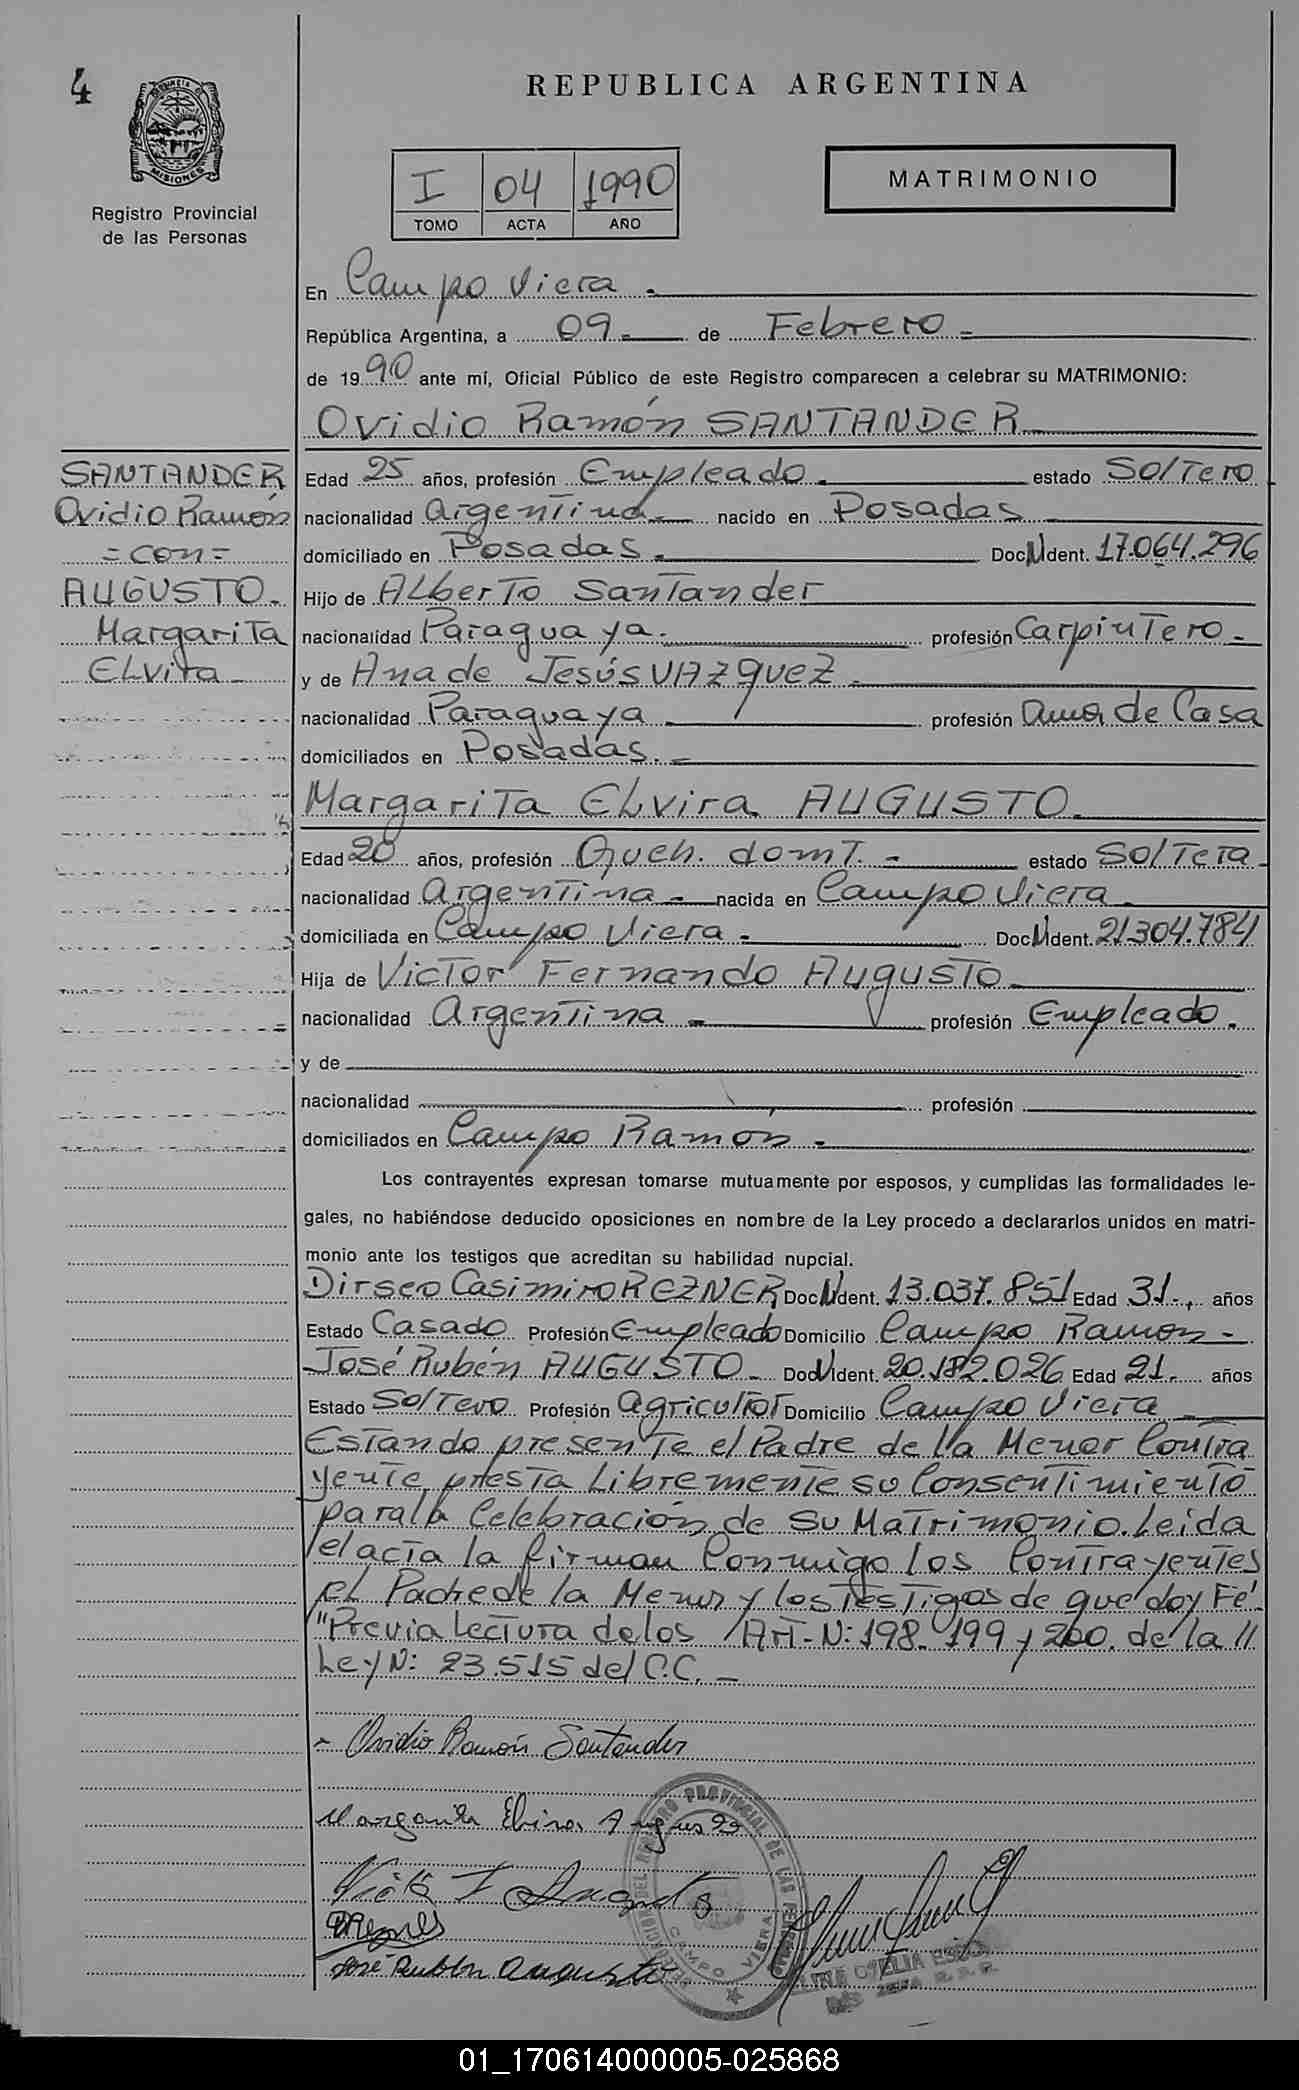 4
REPUBLICA ARGENTINA
MISIONES
Registro Provincial
de las Personas
I 04 1990
TOMO ACTA AÑO
MATRIMONIO
En Campo Viera.
República Argentina, a 09 de Febrero
de 1990 ante mí, Oficial Público de este Registro comparecen a celebrar su MATRIMONIO:
Ovidio Ramón SANTANDER
SANTANDER
Ovidio Ramón
=con=
AUGUSTO.
Margarita
ELvira
Edad 25 años, profesión Empleado. estado Soltero
nacionalidad Argentina nacido en Posadas
domiciliado en Posadas. Doc. N Ident. 17.064.296
Hijo de ALberto Santander
nacionalidad Paraguaya. profesión Carpintero
y de Ana de Jesús VAZquEZ
nacionalidad Paraguaya profesión ama de Casa
domiciliados en Posadas.
Margarita ELvira AUGUSTO.
Edad 20 años, profesión Queh. domt. estado Soltera
nacionalidad Argentina nacida en Campo Viera
domiciliada en Campo Viera Doc. N Ident. 21304.784
Hija de Victor Fernando Augusto
nacionalidad Argentina profesión Empleado.
y de
nacionalidad profesión
domiciliados en Campo Ramón
Los contrayentes expresan tomarse mutuamente por esposos, y cumplidas las formalidades le-
gales, no habiéndose deducido oposiciones en nombre de la Ley procedo a declararlos unidos en matri-
monio ante los testigos que acreditan su habilidad nupcial.
Dirseo Casimiro REZNER Doc. N Ident. 13.037.851 Edad 31 años
Estado Casado Profesión Empleado Domicilio Campo Ramon
José Rubén AUGUSTO Doc. N Ident. 20.182.026 Edad 21 años
Estado Soltero Profesión agricultor Domicilio Campo Viera
Estando presente el Padre de la Menor Contra
yente, presta Libremente su Consentimiento
para la Celebración de su Matrimonio. Leida
el acta la firman Conmigo los Contrayentes
el Padre de la Menor y los Testigos de que doy Fé.
"Previa Lectura de los Art. N: 198. 199 y 200. de la //
Ley N: 23.515 del C.C.
Ovidio Ramón Santander
Margarita Elvira Augusto
Victor F Augusto
José Rubén Augusto
REGISTRO PROVINCIAL DE LAS PERSONAS
CAMPO VIERA
01_170614000005-025868